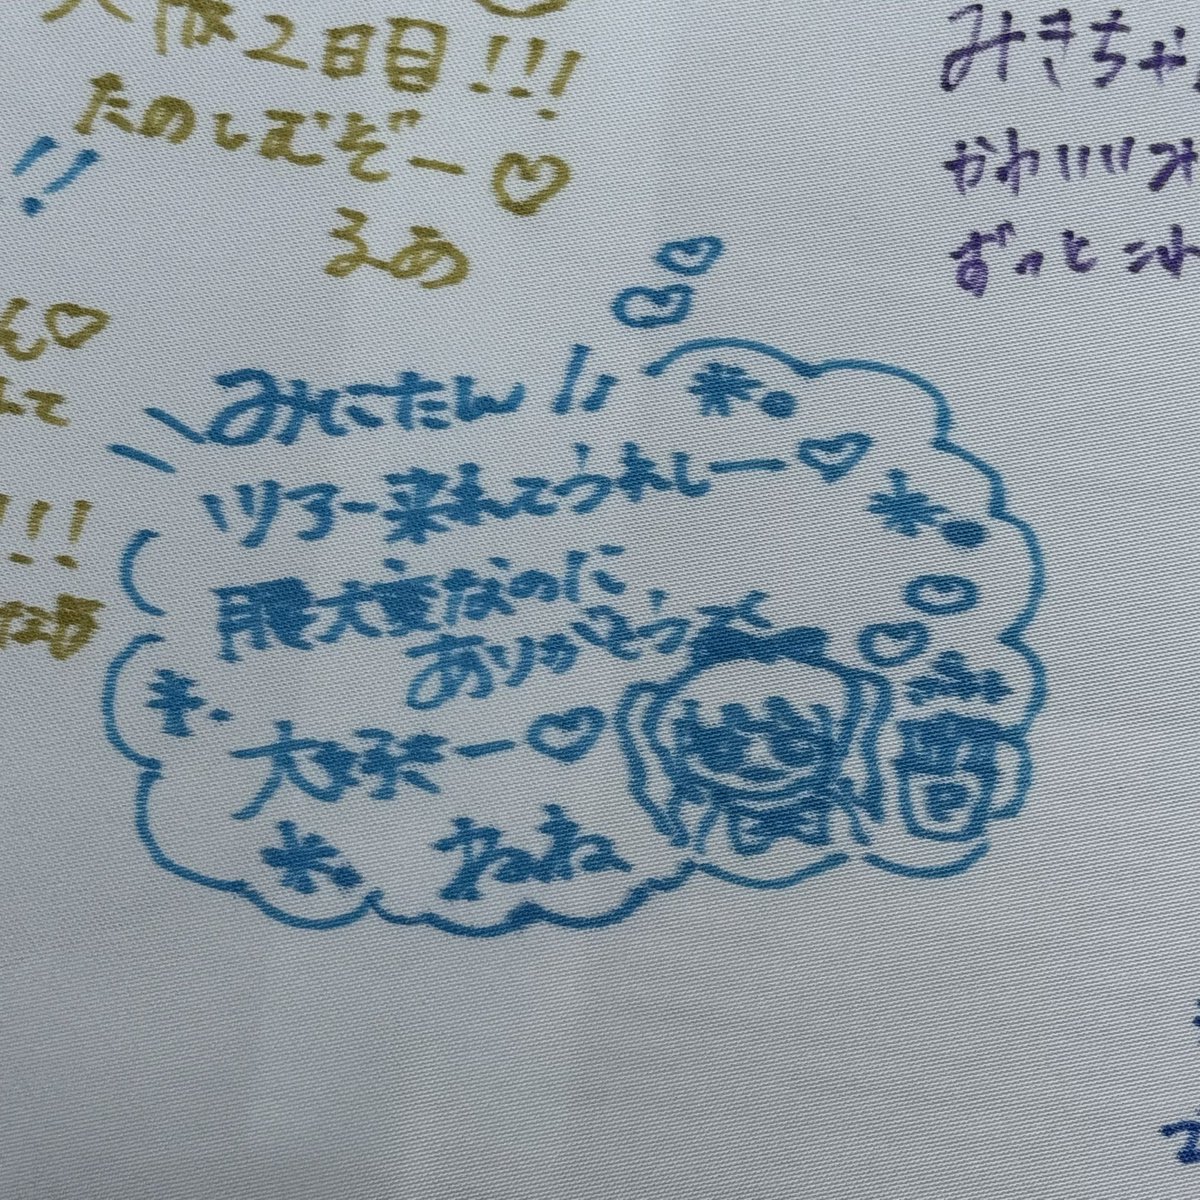 大阪2日目!!!
たのしむぞー♡
るあ
みきちゃ
かわいいみ
ずっと
みにたん!!
ツアー来れてうれしー♡
腰大変なのに
ありがとうって
大好きー♡
ねね